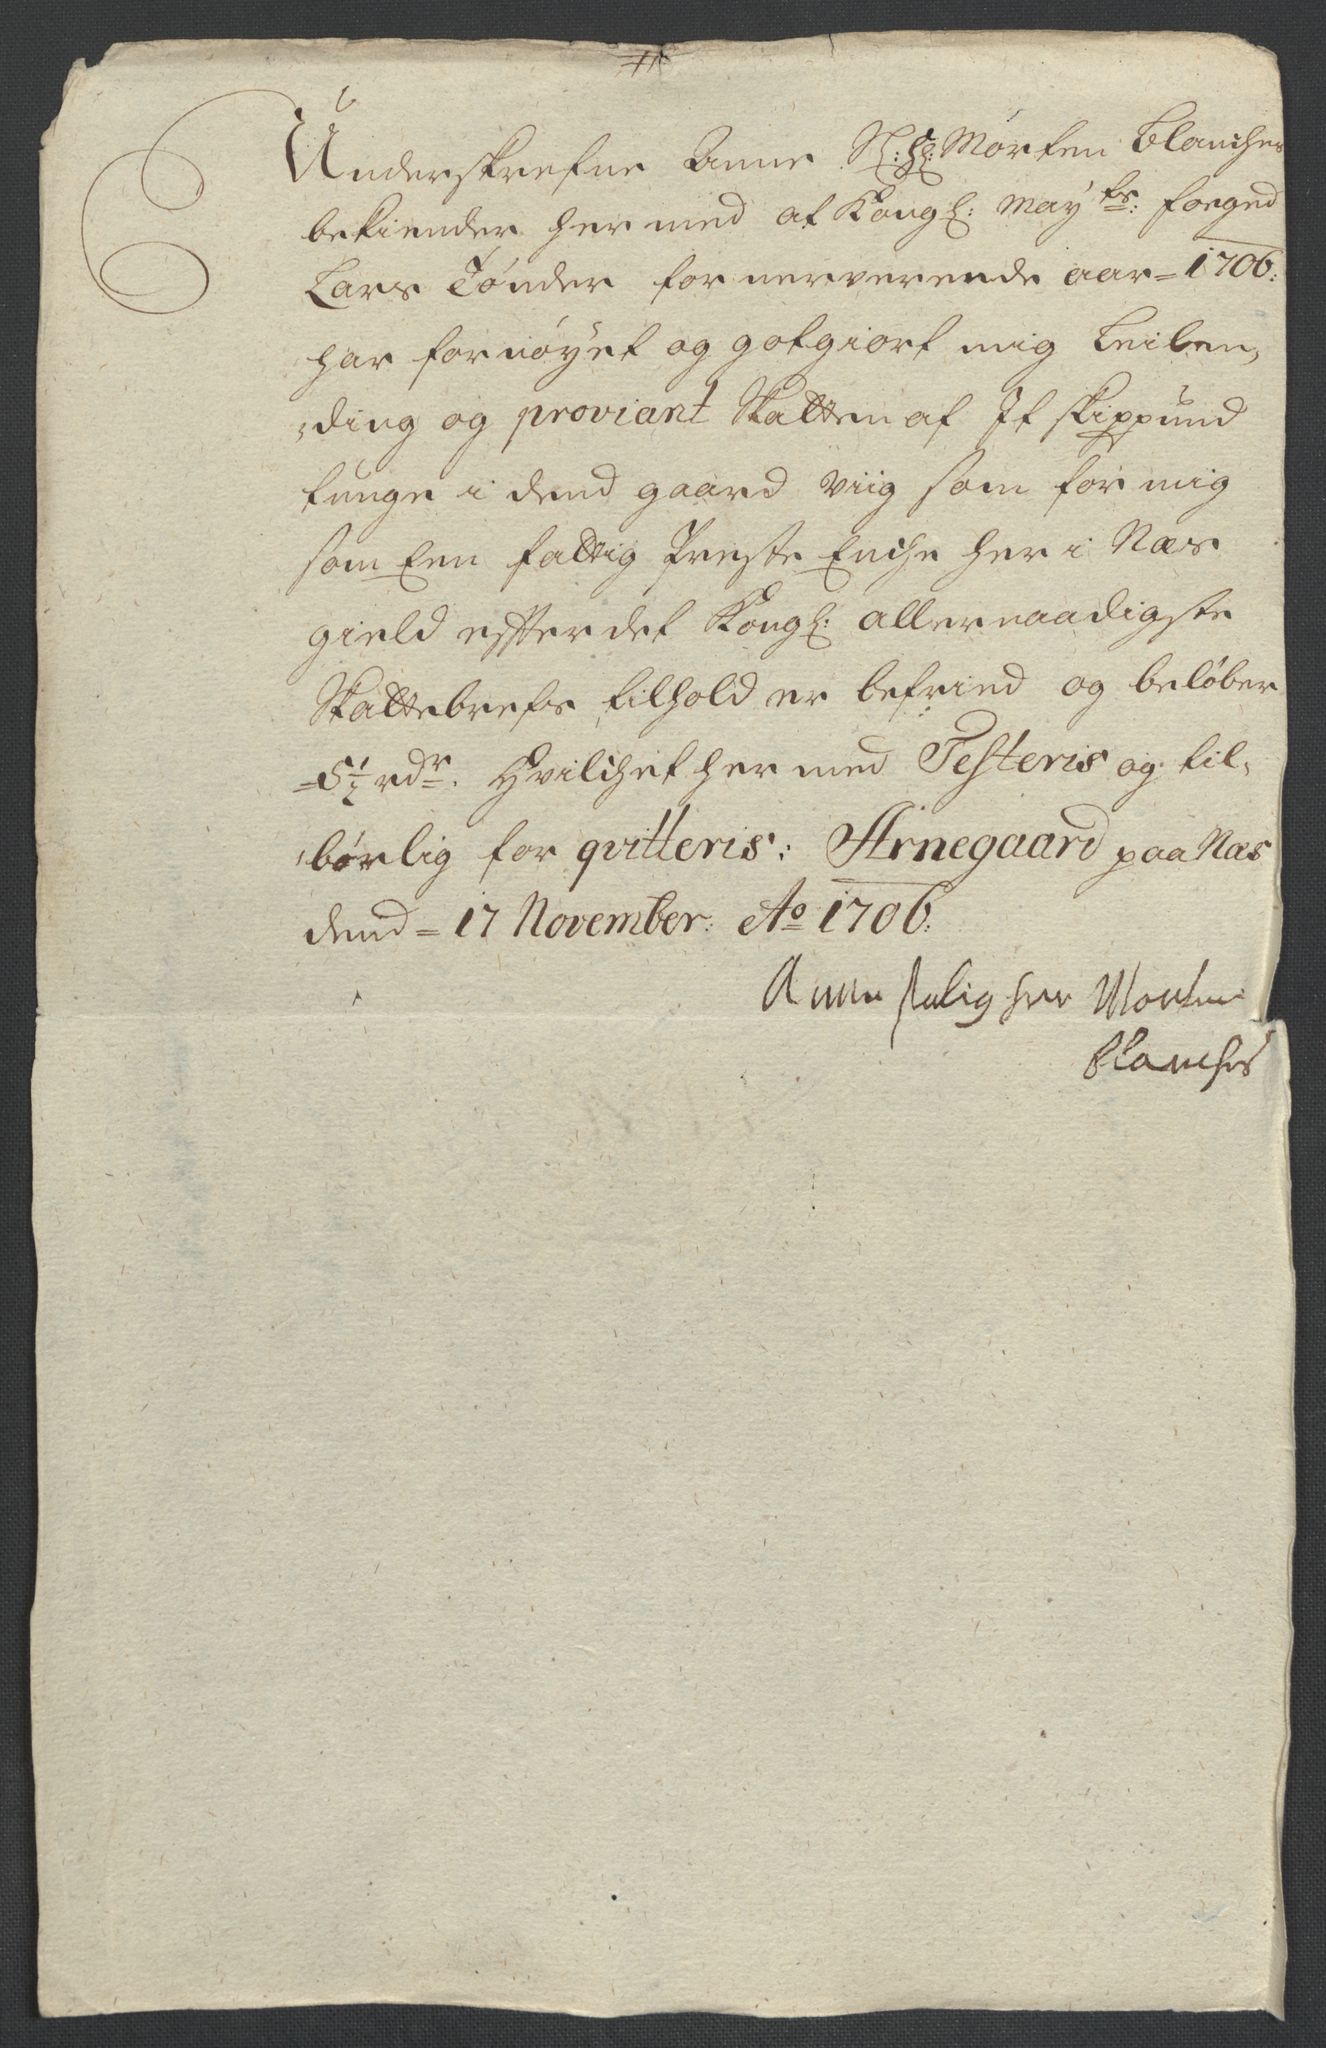 Underskrefne Anne Sl: Hr: Morten Blanches
bekiender her med at Kongl: May.ts: foeged
Lars Tønder for nerverende aar = 1706:
har fornøyet og gotgiort mig Leilen,
,ding og proviant Skatten af It skippund
tunge i dend gaard Viig som for mig
som Een fattig Preste Enche her i Næs
gield effter det Kongl: allernaadigste
Skattebrefs tilhold er befried og beløber
= 5½ rdr. Hvilchet her med Testeris og til,
,børlig for qvitteris: Arnegaard paa Næs
dend = 17 November: Ao 1706:
Anne salig her Morten
Blanches